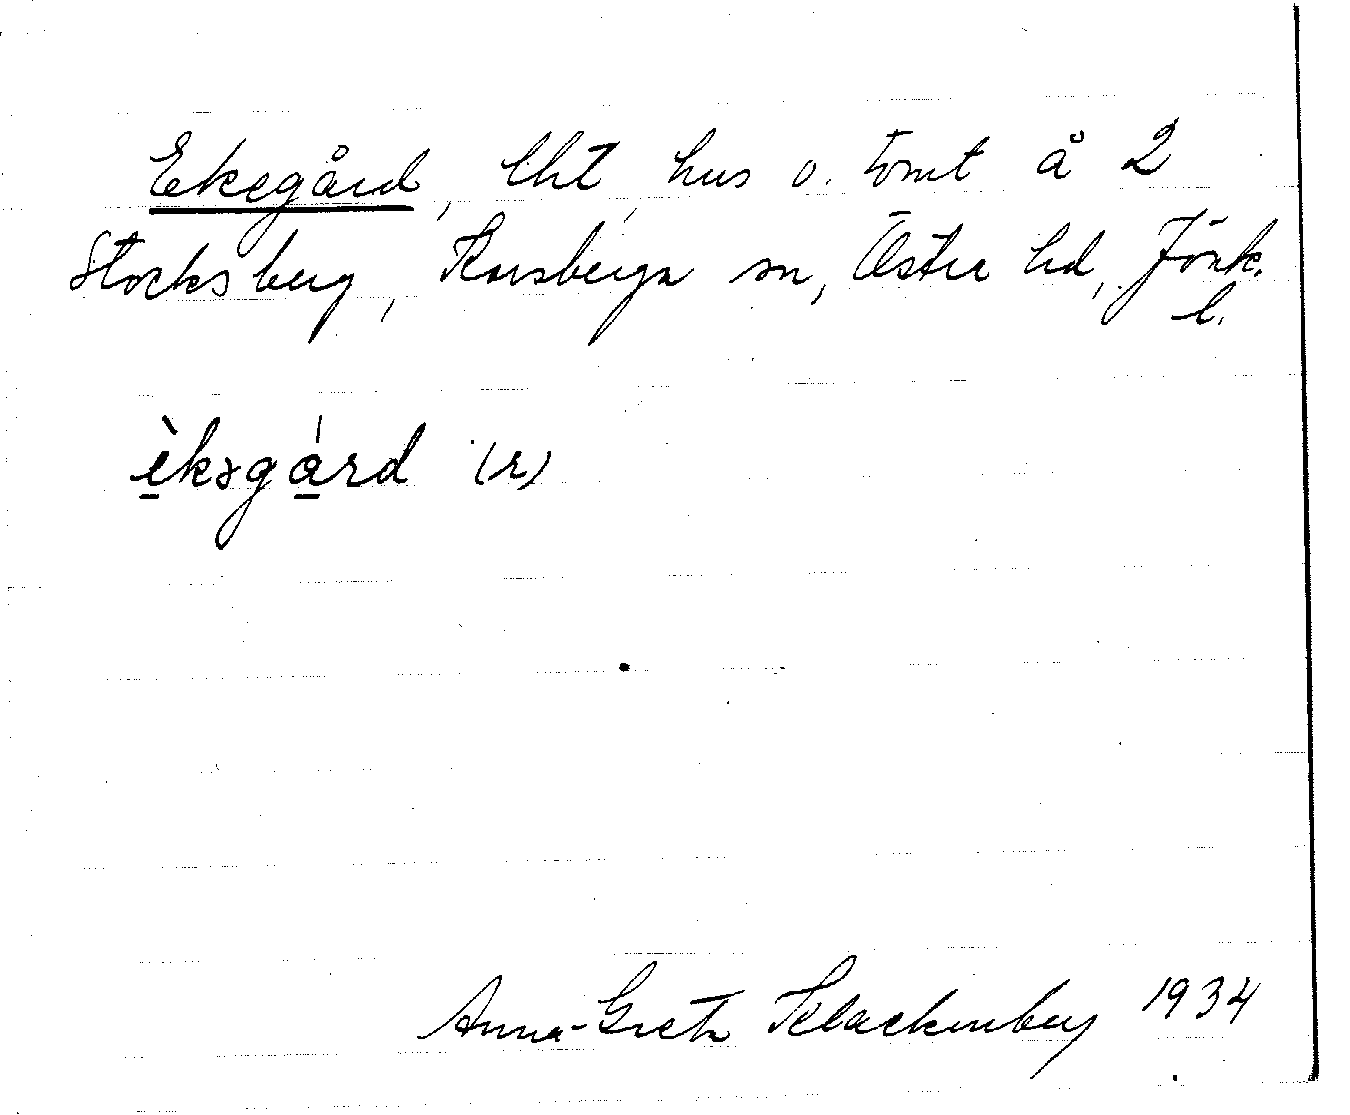 Ekegård, lht, hus o. tomt å 2
Stocksberg, Korsberga sn, Östra hd, Jönk.
l.
èkəgárd (r)
Anna-Greta Klackenberg 1934